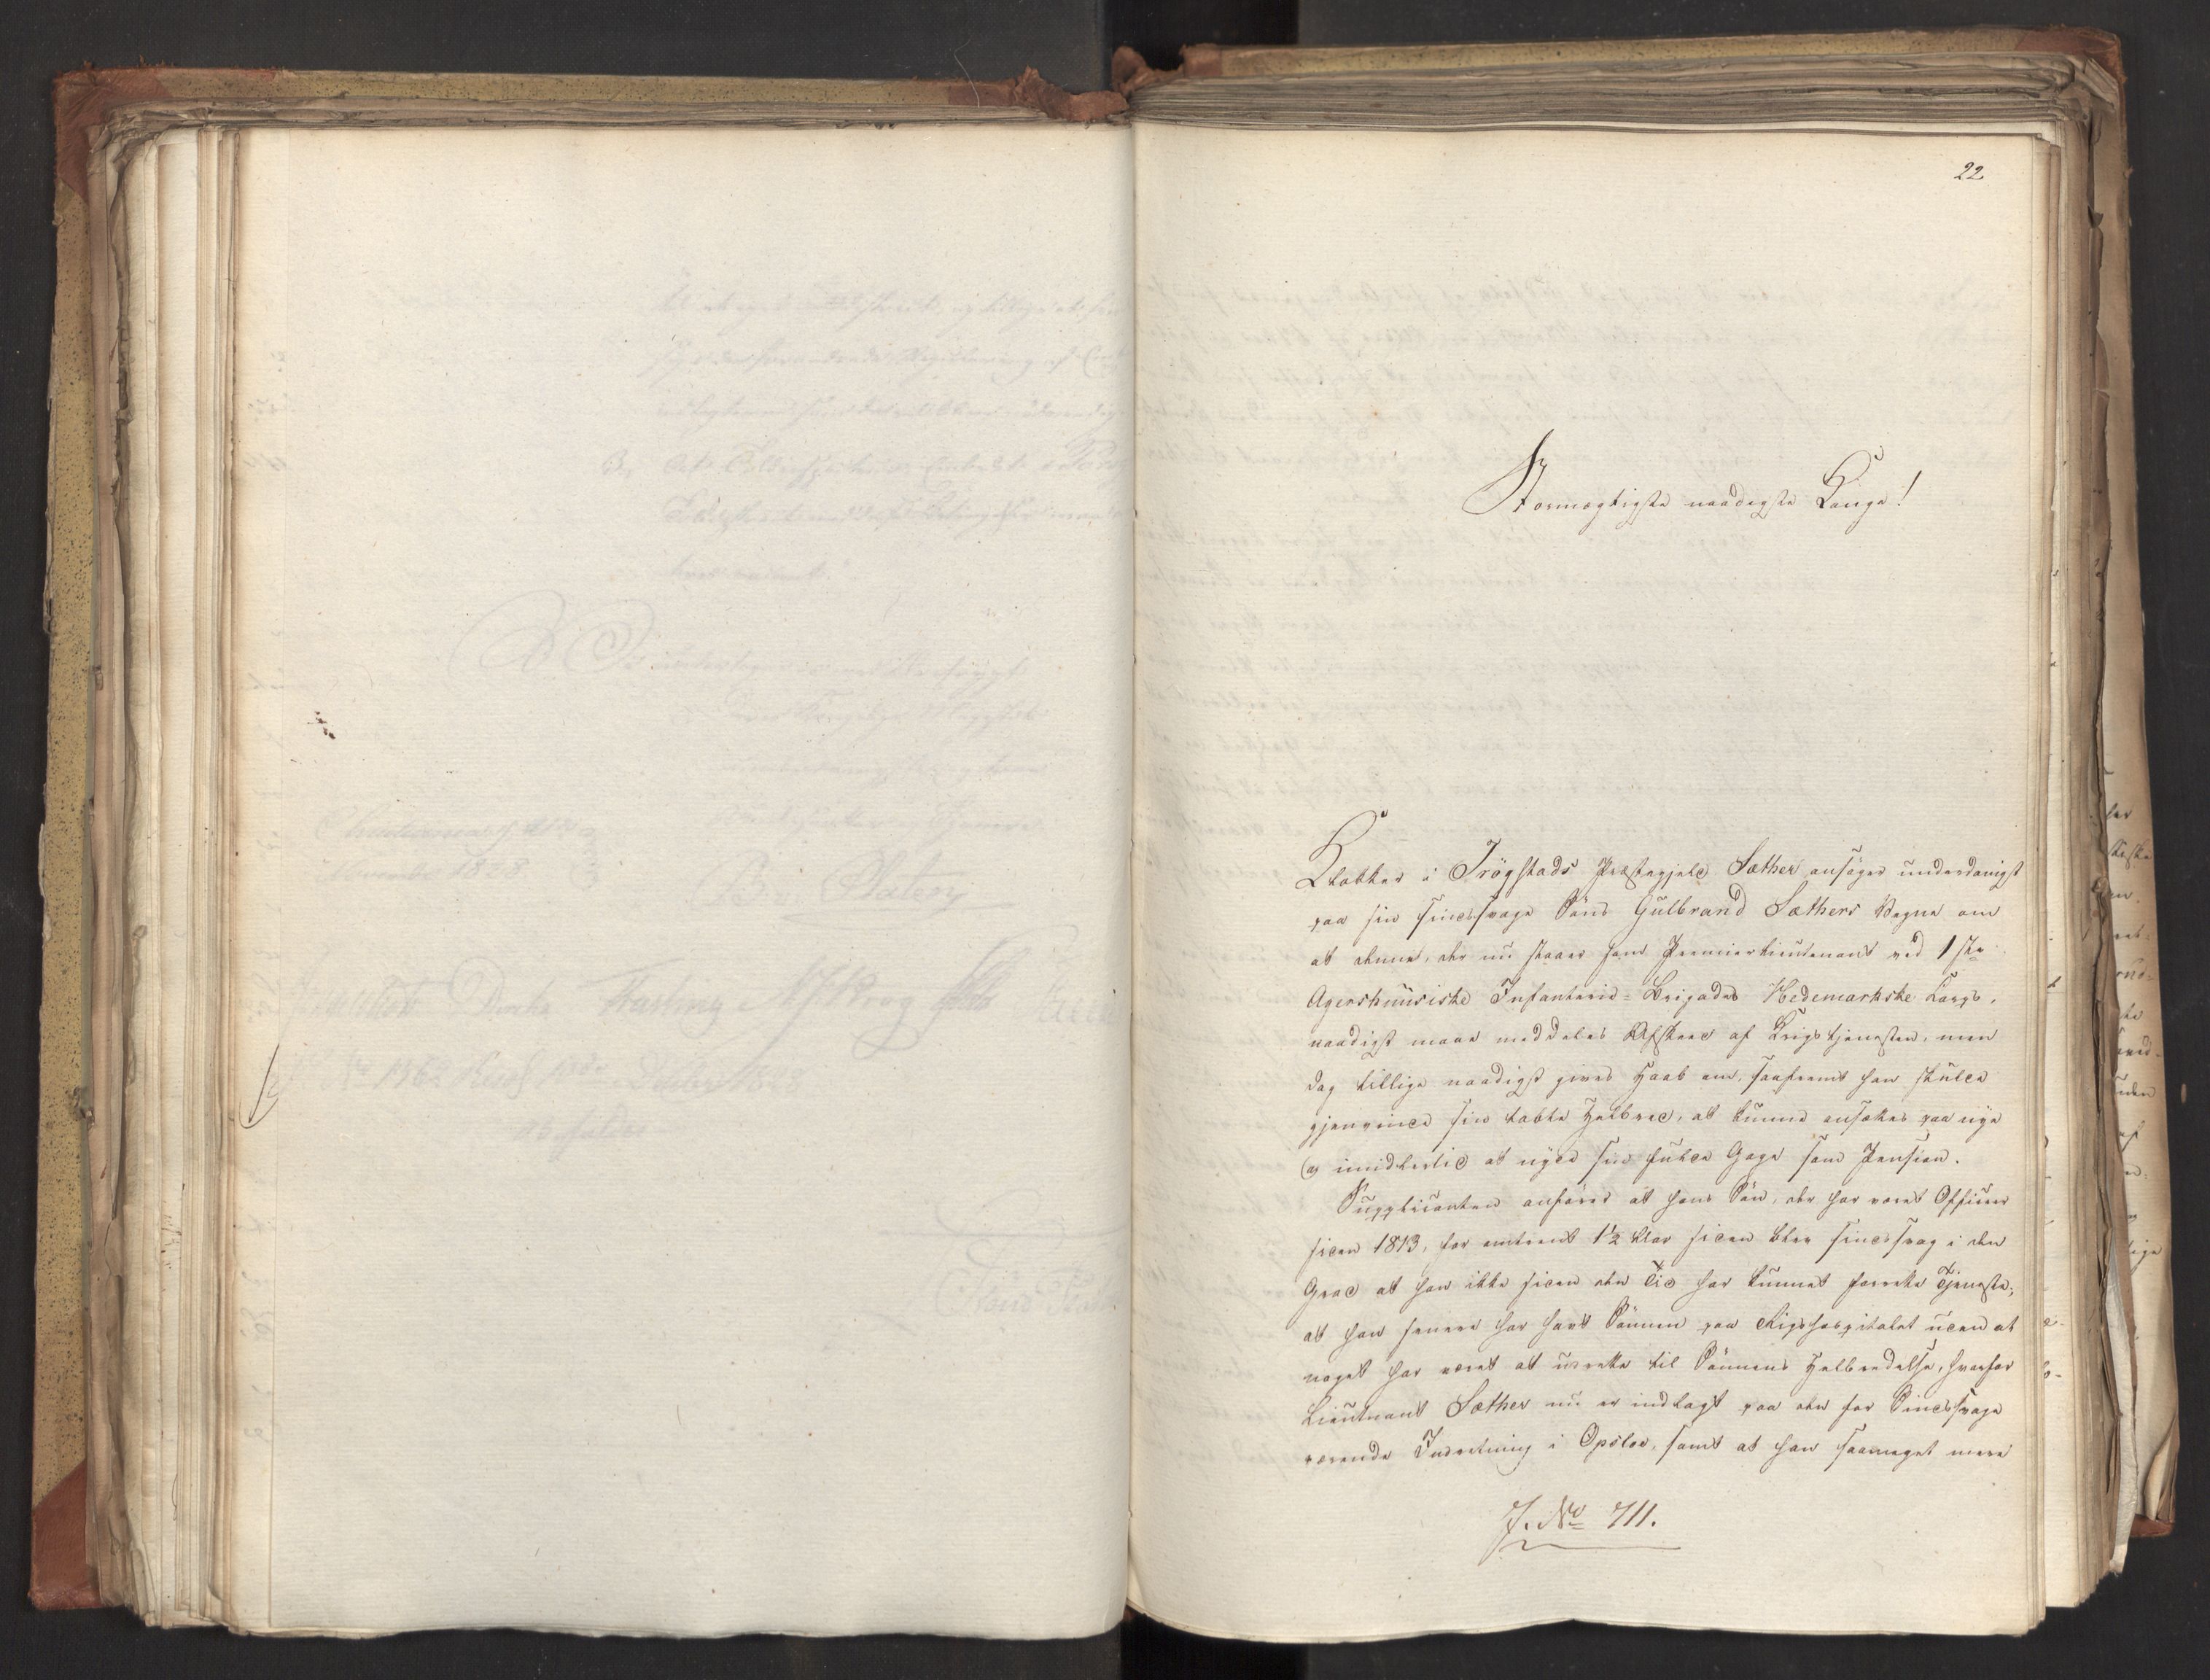 22
Stormægtigste naadigste Konge!
Klokker i Trögstads Præstegjeld Sæther ansöger underdanigst
paa sin sindssvage Söns Gulbrand Sæthers Vegne om
at denne, der nu staaer som Premierlieutenant ved 1ste
Agershuusiske Infanterie-Brigades Hedemarkske Corps,
naadigst maae meddeles Afskeed af Krigstjenesten, men
dog tillige naadigst gives Haab om, saafremt han skulde
gjenvinde sin tabte Helbred, at kunne ansættes paa nye
og imidlertid at nyde sin fulde Gage som Pension.
Supplicanten anförer at hans Sön, der har været Officier
siden 1813, for omtrent 1½ Aar siden blev sindssvag i den
Grad at han ikke siden den Tid har kunnet forrette Tjeneste;
at han senere har havt Sönnen paa Rigshospitalet uden at
noget har været at udrette til Sönnens Helbredelse, hvorfor
Lieutnant Sæther nu er indlagt paa den for Sindssvage
værende Indretning i Opsloe, samt at han saameget mere
J. No 711.